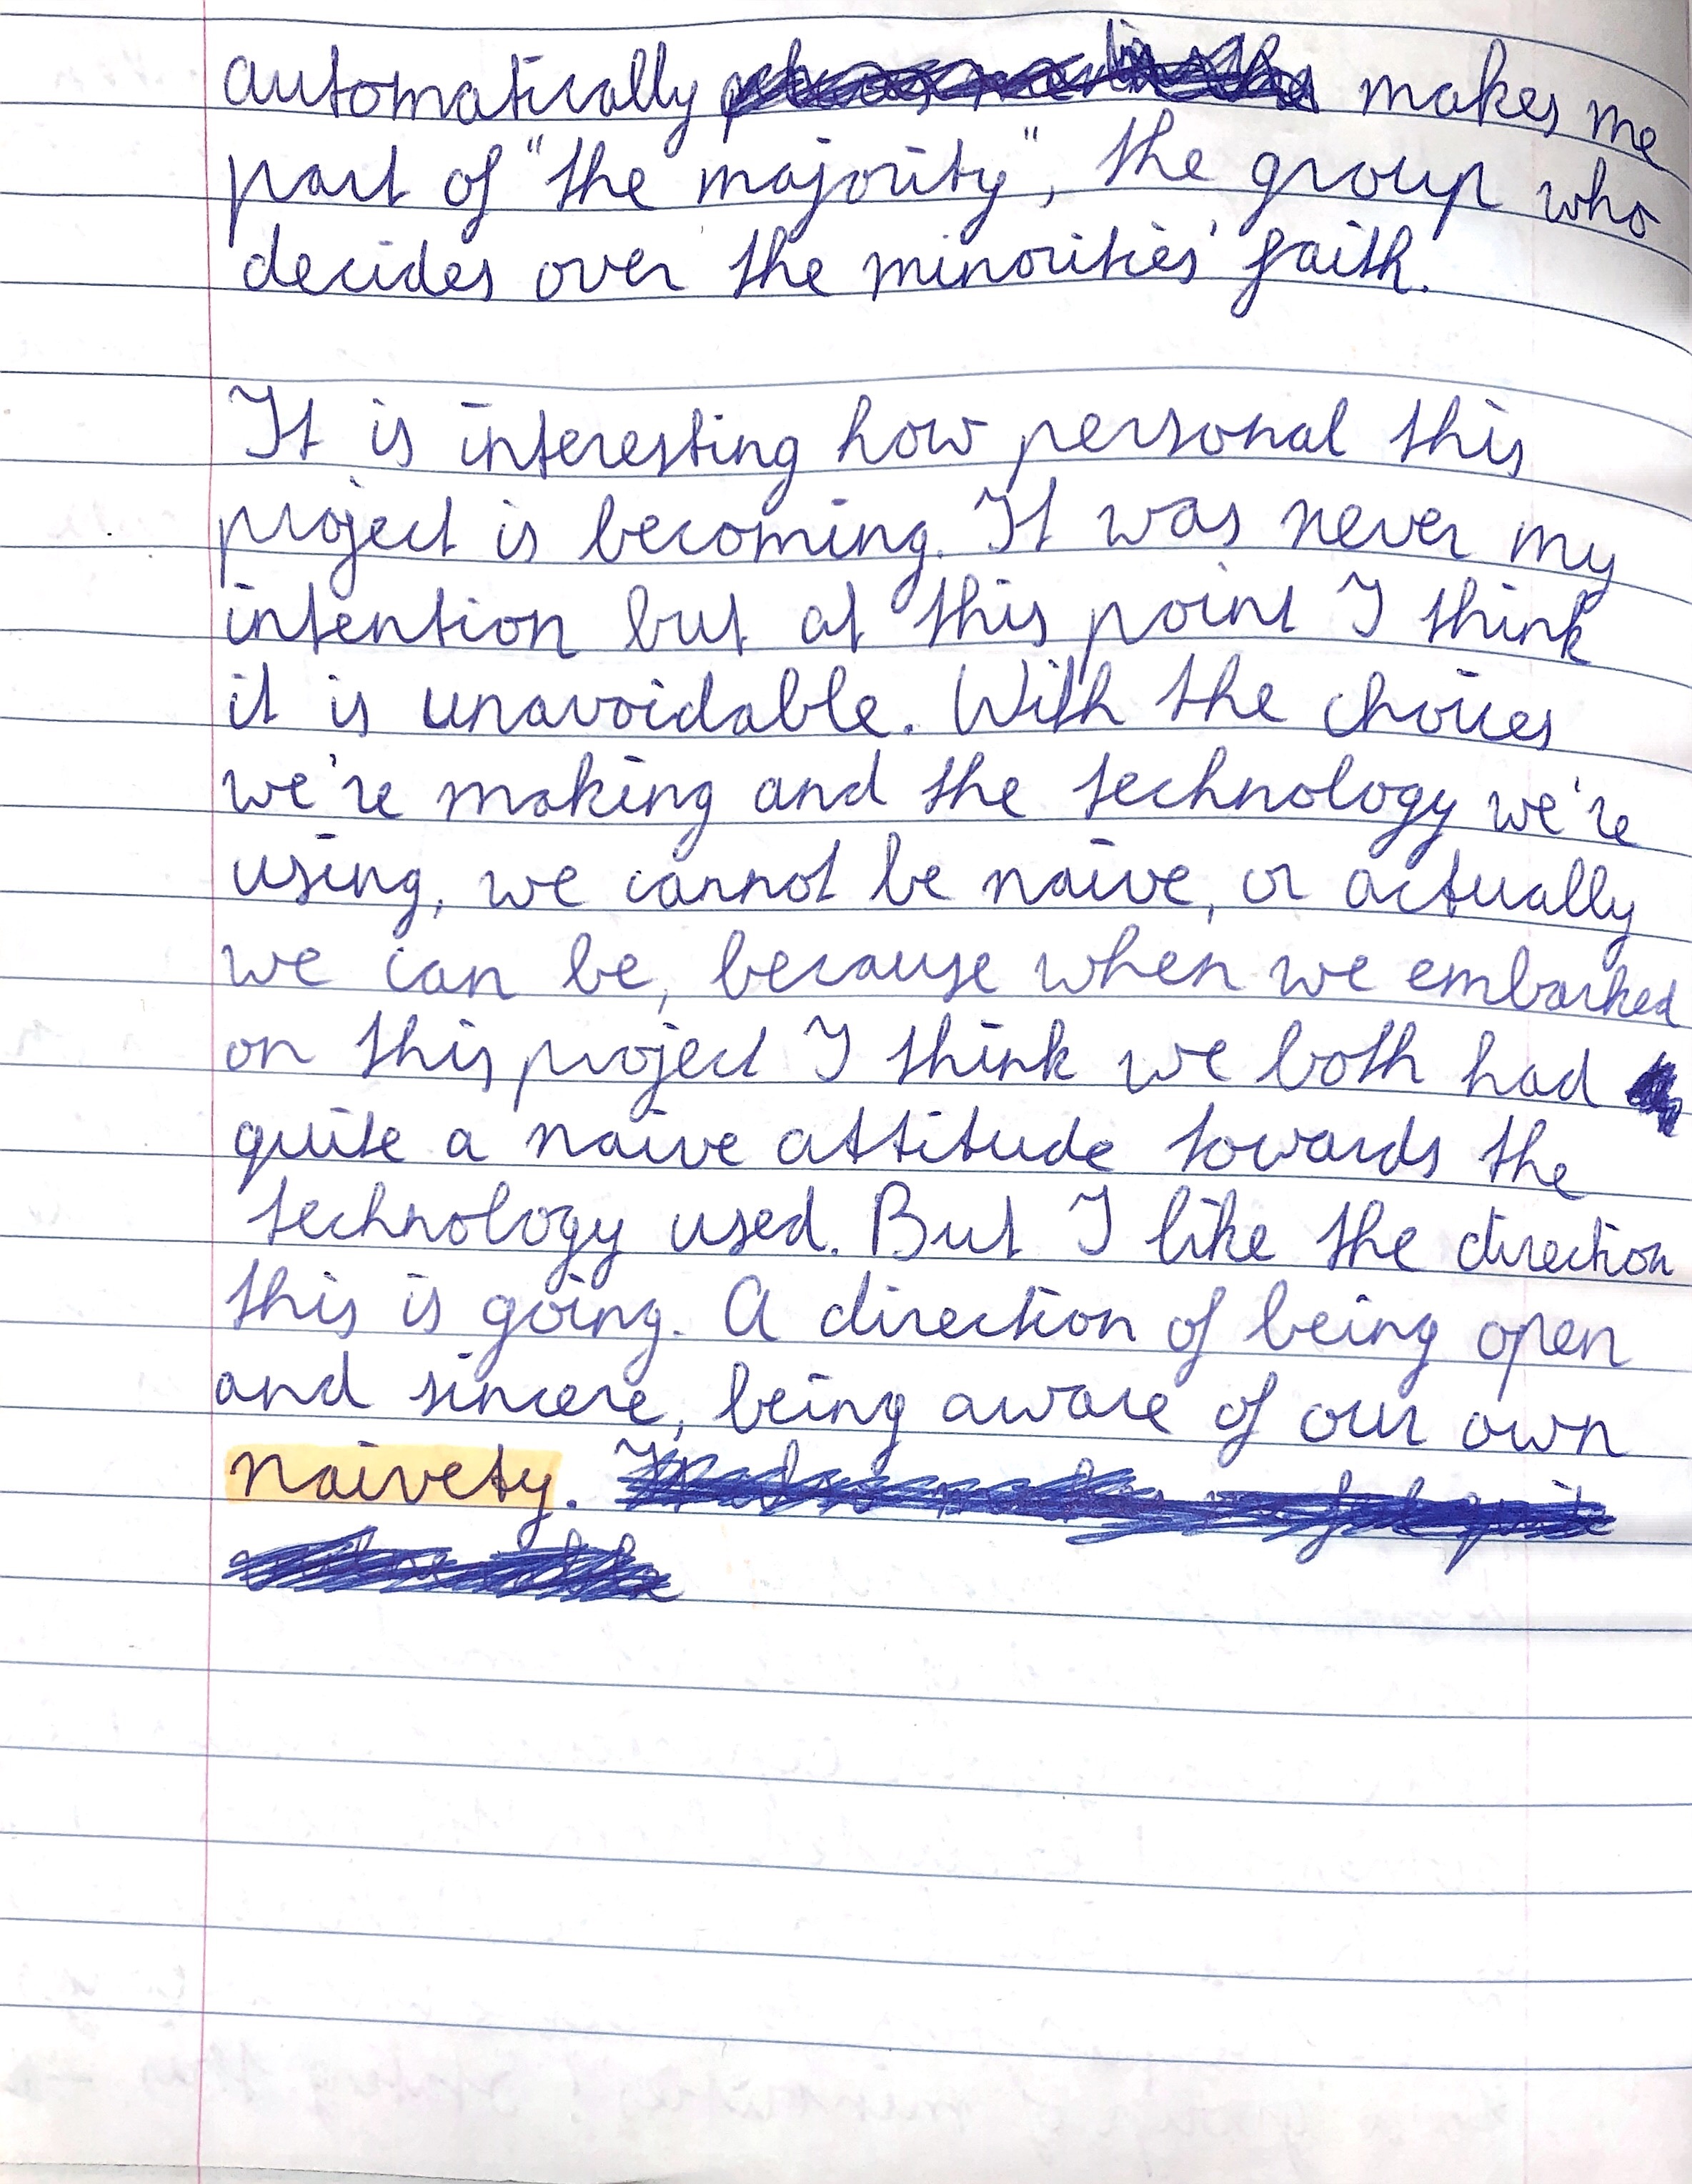 automatically makes me
part of "the majority", the group who
decides over the minorities' faith.
It is interesting how personal this
project is becoming. It was never my
intention but at this point I think
it is unavoidable. With the choices
we're making and the technology we're
using, we cannot be naive, or actually
we can be, because when we embarked
on this project I think we both had
quite a naive attitude towards the
technology used. But I like the direction
this is going. A direction of being open
and sincere, being aware of our own
naivety.